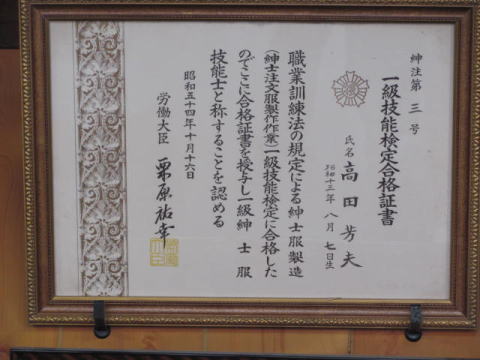 紳注第三号
一級技能検定合格証書
氏名 高田芳夫
昭和十三年八月七日生
職業訓練法の規定による紳士服製造
(紳士注文服製作作業)一級技能検定に合格した
のでここに合格証書を授与し一級紳士服
技能士と称することを認める
昭和五十四年十月十六日
労働大臣 栗原祐幸